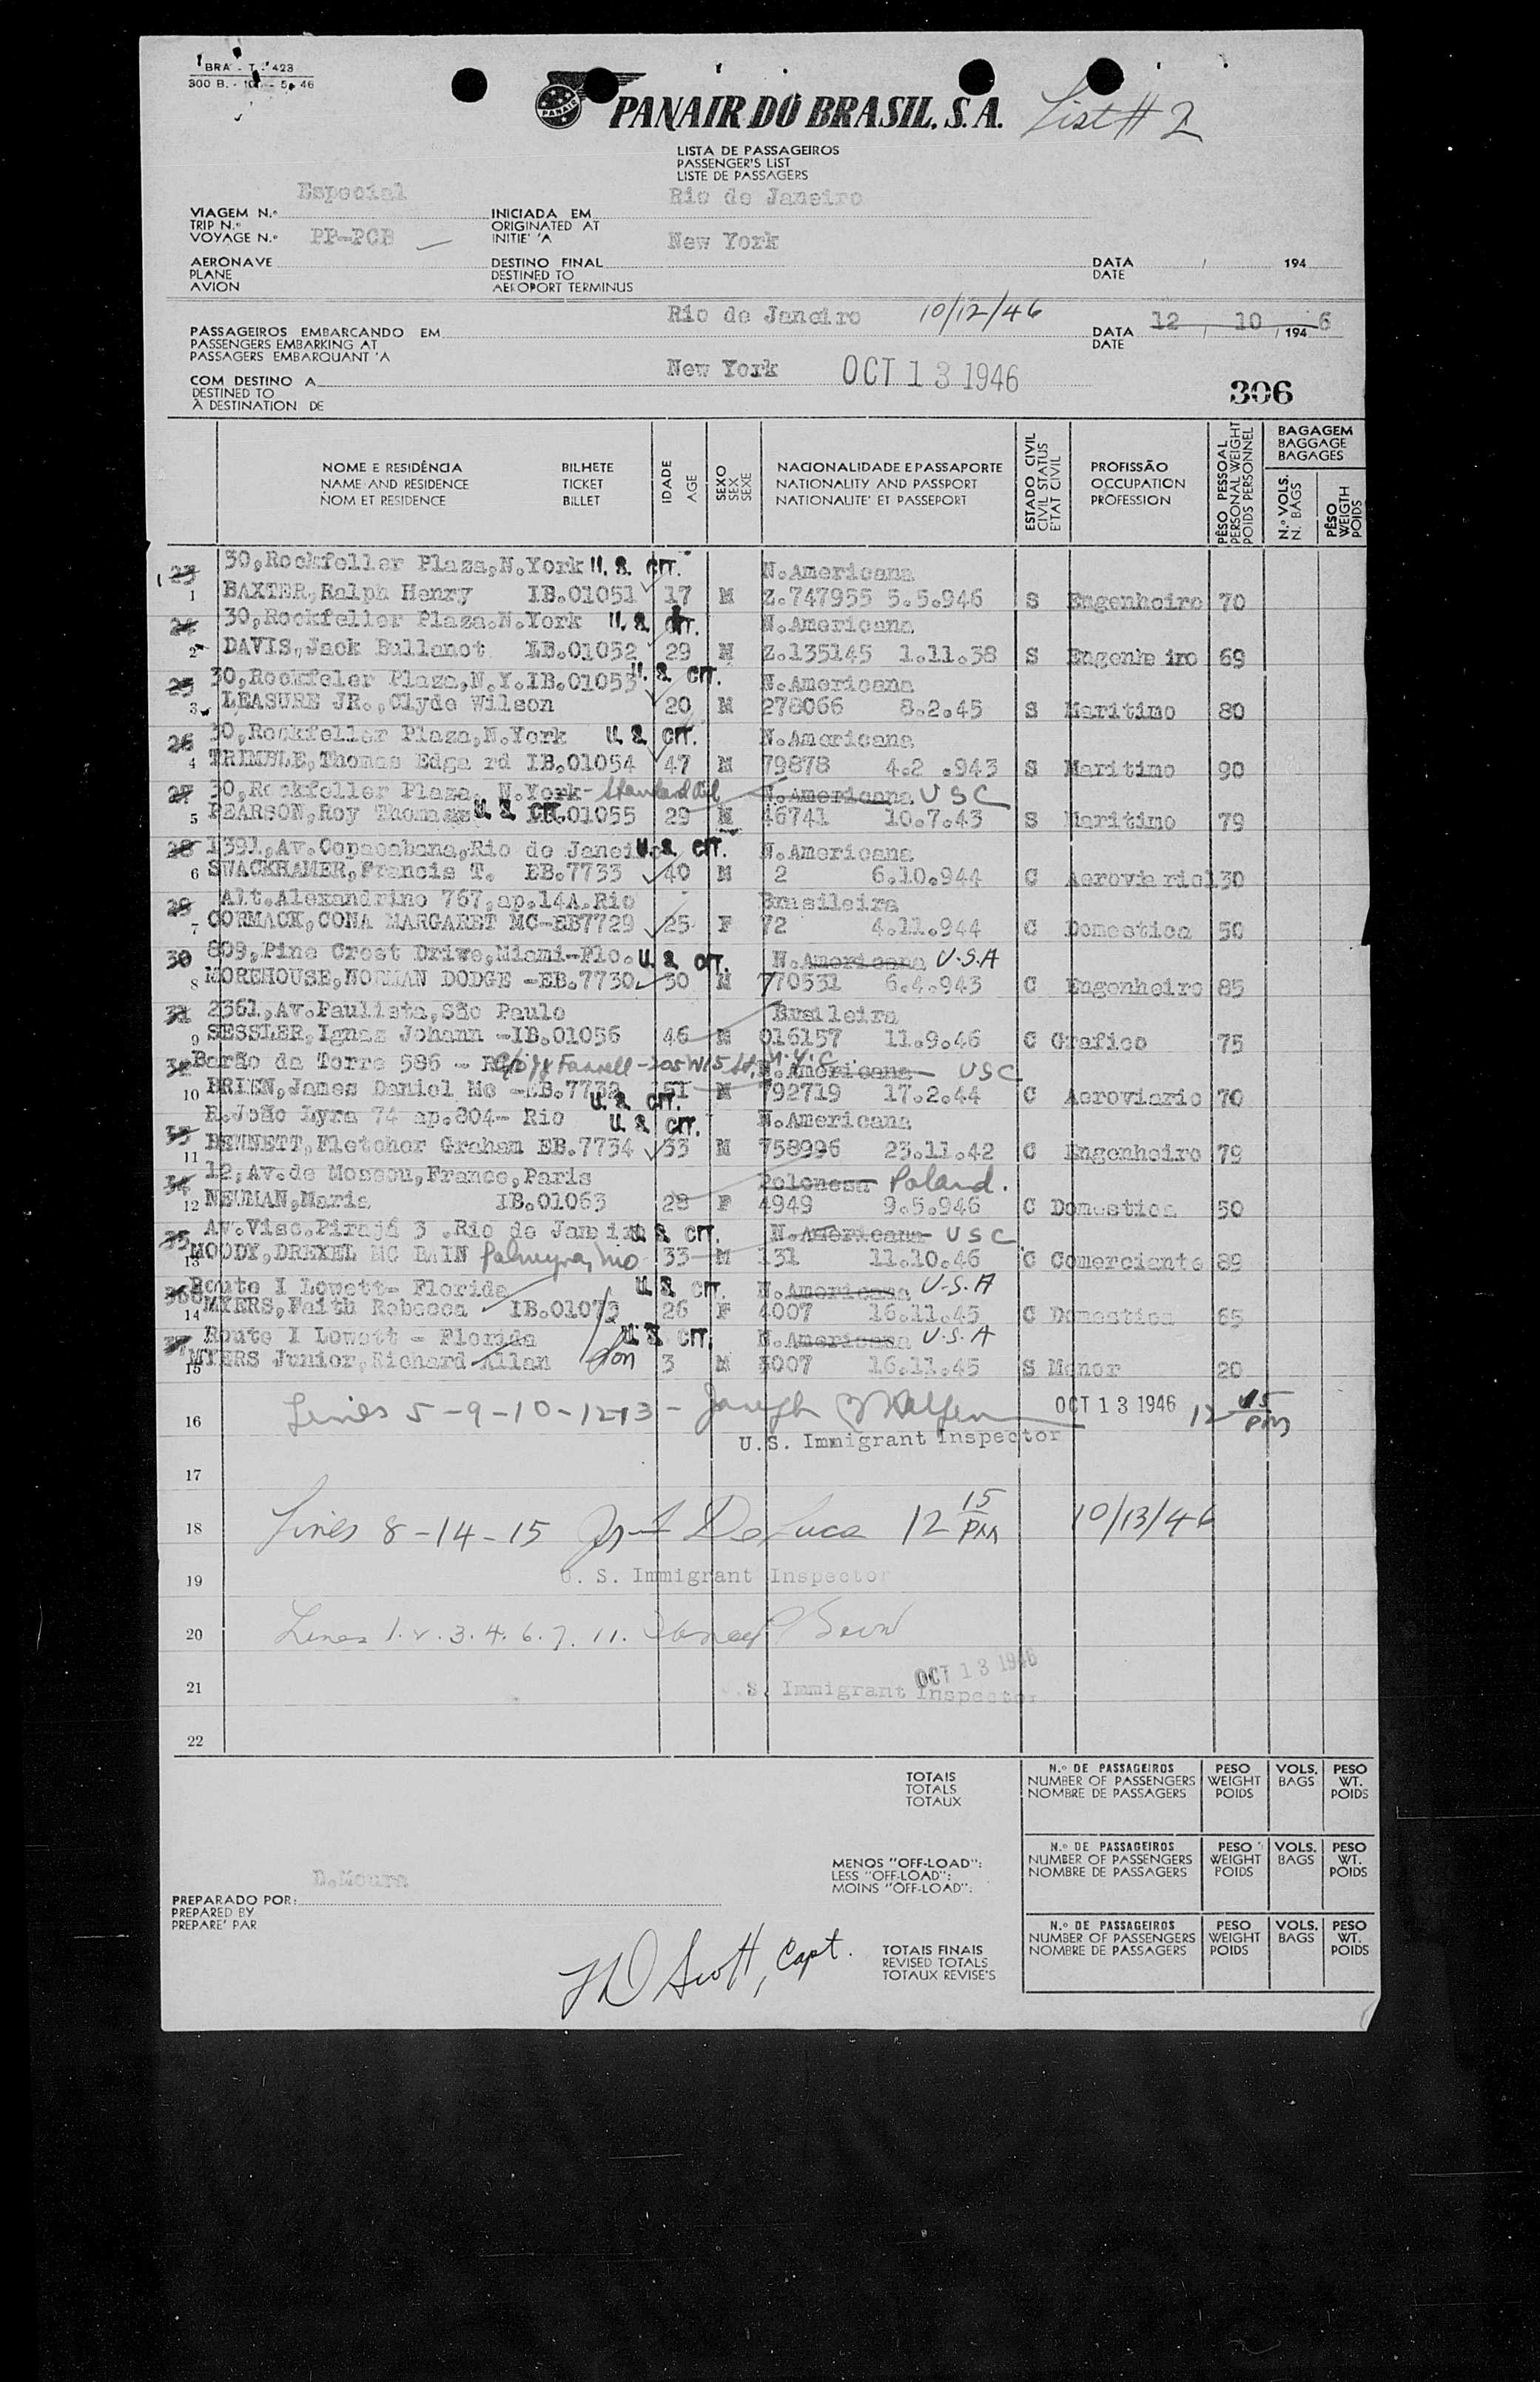 BRA - T - 423
300 B. - 10 - 5 - 46
PANAIR
PANAIR DO BRASIL. S. A. List # 2
LISTA DE PASSAGEIROS
PASSENGER'S LIST
LISTE DE PASSAGERS
Especial Rio de Janeiro
VIAGEM N.º INICIADA EM
TRIP N.º ORIGINATED AT
VOYAGE N.º PP-PCB INITIE' 'A New York
AERONAVE DESTINO FINAL DATA 194
PLANE DESTINED TO DATE
AVION AEROPORT TERMINUS
Rio de Janeiro 10/12/46
PASSAGEIROS EMBARCANDO EM DATA 12 / 10 / 194 6
PASSENGERS EMBARKING AT DATE
PASSAGERS EMBARQUANT 'A
New York OCT 13 1946
COM DESTINO A 306
DESTINED TO
À DESTINATION DE
NOME E RESIDÊNCIA BILHETE IDADE SEXO NACIONALIDADE E PASSAPORTE ESTADO CIVIL PROFISSÃO PÊSO PESSOAL BAGAGEM
NAME AND RESIDENCE TICKET AGE SEX NATIONALITY AND PASSPORT CIVIL STATUS OCCUPATION PERSONAL WEIGHT BAGGAGE
NOM ET RESIDENCE BILLET SEXE NATIONALITE' ET PASSEPORT E'TAT CIVIL PROFESSION POIDS PERSONNEL BAGAGES
N.º VOLS. N. BAGS PÊSO WEIGTH POIDS
23 30,Rockfeller Plaza,N.York U. S. CIT. N.Americana
1 BAXTER,Ralph Henry IB.01051 17 M Z.747955 5.5.946 S Engenheiro 70
24 30,Rockfeller Plaza.N.York U. S. CIT. N.Americana
2 DAVIS,Jack Bullanot IB.01052 29 M Z.135145 1.11.38 S Engenheiro 69
25 30,Rockfeler Plaza,N.Y.IB.01053 U. S. CIT. N.Americana
3 LEASURE JR.,Clyde Wilson 20 M 278066 8.2.45 S Maritimo 80
26 30,Rockfeller Plaza,N.York U. S. CIT. N.Americana
4 TRIMBLE,Thomas Edga rd IB.01054 47 M 79878 4.2 .943 S Maritimo 90
27 30,Rockfeller Plaza, N.York- Standard Oil N.Americana USC
5 PEARSON,Roy Thomas U. S. CIT. IB.01055 29 M 46741 10.7.43 S Maritimo 79
28 1391,Av.Copacabana,Rio de Janeiro U. S. CIT. N.Americana
6 SWACKHAMER,Francis T. EB.7733 40 M 2 6.10.944 C Aeroviario 130
29 Alt.Alexandrino 767,ap.14A.Rio Brasileira
7 CORMACK,CONA MARGARET MC-EB7729 25 F 72 4.11.944 C Domestica 50
30 809,Pine Crest Drive,Miami-Flo. U. S. CIT. N.Americana U.S.A
8 MOREHOUSE,NORMAN DODGE -EB.7730 30 M 770531 6.4.943 C Engenheiro 85
31 2361,Av.Paulista,São Paulo Brasileira
9 SESSLER,Ignaz Johann -IB.01056 46 M 016157 11.9.46 C Grafico 75
32 Barão da Torre 586 - Farrell-205 W15 St. N.Y.C. N.Americana USC
10 BRIEN,James Daniel Mc -EB.7732 51 M 792719 17.2.44 C Aeroviario 70
U. S. CIT.
33 R.João Lyra 74 ap.804- Rio U. S. CIT. N.Americana
11 BENNETT,Fletcher Graham EB.7734 33 M 758996 23.11.42 C Engenheiro 79
34 12,Av.de Moscou,France,Paris Polonesa Poland.
12 NEUMAN,Maria IB.01063 28 F 4949 9.5.946 C Domestica 50
35 Av.Visc.Pirajá 3 .Rio de Janeiro U. S. CIT. N.Americana USC
13 MOODY,DREXEL MC BAIN Palmyra, Mo 33 M 131 11.10.46 C Comerciante 89
36 Route I Lowett- Florida U. S. CIT. N.Americana U.S.A
14 MYERS,Faith Rebecca IB.01073 26 F 4007 16.11.45 C Domestica 65
37 Route I Lowett - Florida U. S. CIT. N.Americana U.S.A
15 MYERS Junior,Richard Allan Son 3 M 4007 16.11.45 S Menor 20
16 Lines 5-9-10-12-13- Joseph OCT 13 1946 12 45 PM
U.S. Immigrant Inspector
17
18 Lines 8-14-15 De Luca 12 15 PM 10/13/46
19 U. S. Immigrant Inspector
20 Lines 1.2.3.4.6.7.11.
OCT 13 1946
21 U.S. Immigrant Inspector
22
TOTAIS N.º DE PASSAGEIROS PESO VOLS. PESO
TOTALS NUMBER OF PASSENGERS WEIGHT BAGS WT.
TOTAUX NOMBRE DE PASSAGERS POIDS POIDS
N.º DE PASSAGEIROS PESO VOLS. PESO
MENOS "OFF-LOAD": NUMBER OF PASSENGERS WEIGHT BAGS WT.
LESS "OFF-LOAD": NOMBRE DE PASSAGERS POIDS POIDS
MOINS "OFF-LOAD":
D.Moura
PREPARADO POR:
PREPARED BY
PREPARE' PAR
N.º DE PASSAGEIROS PESO VOLS. PESO
TOTAIS FINAIS NUMBER OF PASSENGERS WEIGHT BAGS WT.
REVISED TOTALS NOMBRE DE PASSAGERS POIDS POIDS
TOTAUX REVISE'S
Scott, Capt.